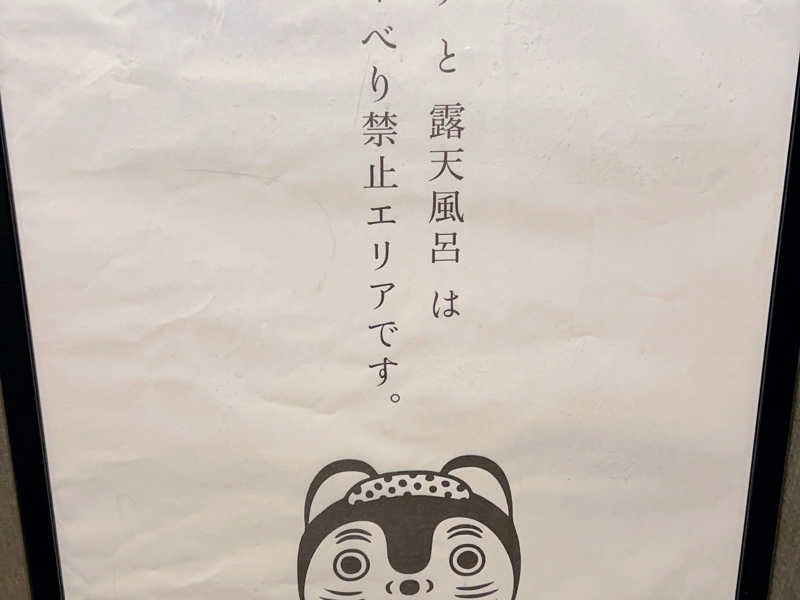 と 露天風呂 は
べり禁止エリアです。